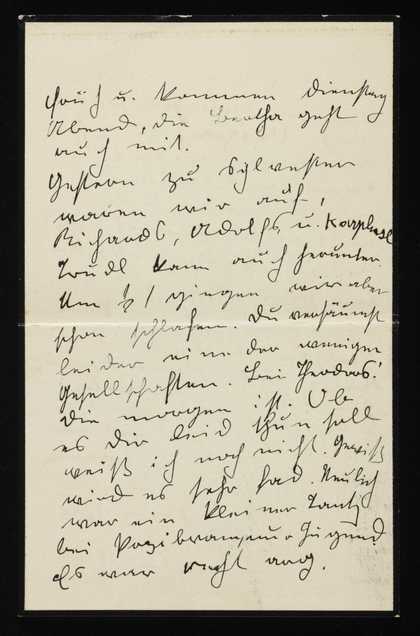 Couch u. kommen Dienstag
Abend, die Bertha geht
auch mit.
Gestern zu Sylvester
waren wir auf,
Richards, Adolfs u. Karplus
Trudl kam auch herunter.
Um ½ 1 giengen wir aber
schon schlafen. Du versäumst
leider eine der wenigen
Gesellschaften. bei Theodors!
die morgen ist. Ob
es Dir leid thun soll
weiß ich noch nicht. Gewiß
wird es sehr fad. Neulich
war ein kleiner Tantz
bei Przibrams, nur Jugend
Es war recht arg.